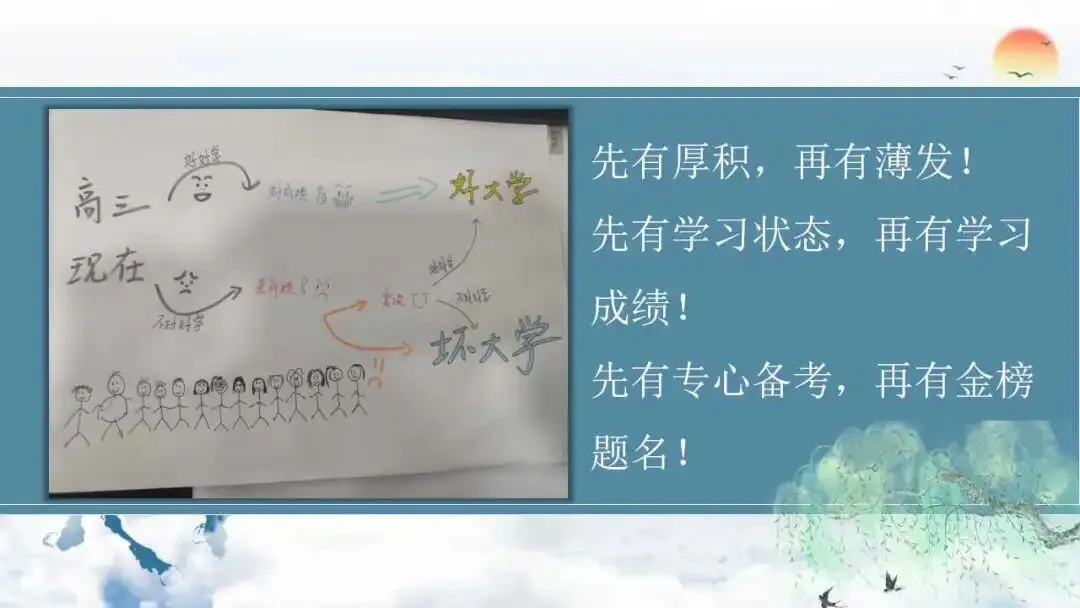 好好学
高三
好成绩
好大学
现在
不好好学
差成绩
复读
好好学
不好好学
坏大学
先有厚积，再有薄发！
先有学习状态，再有学习
成绩！
先有专心备考，再有金榜
题名！